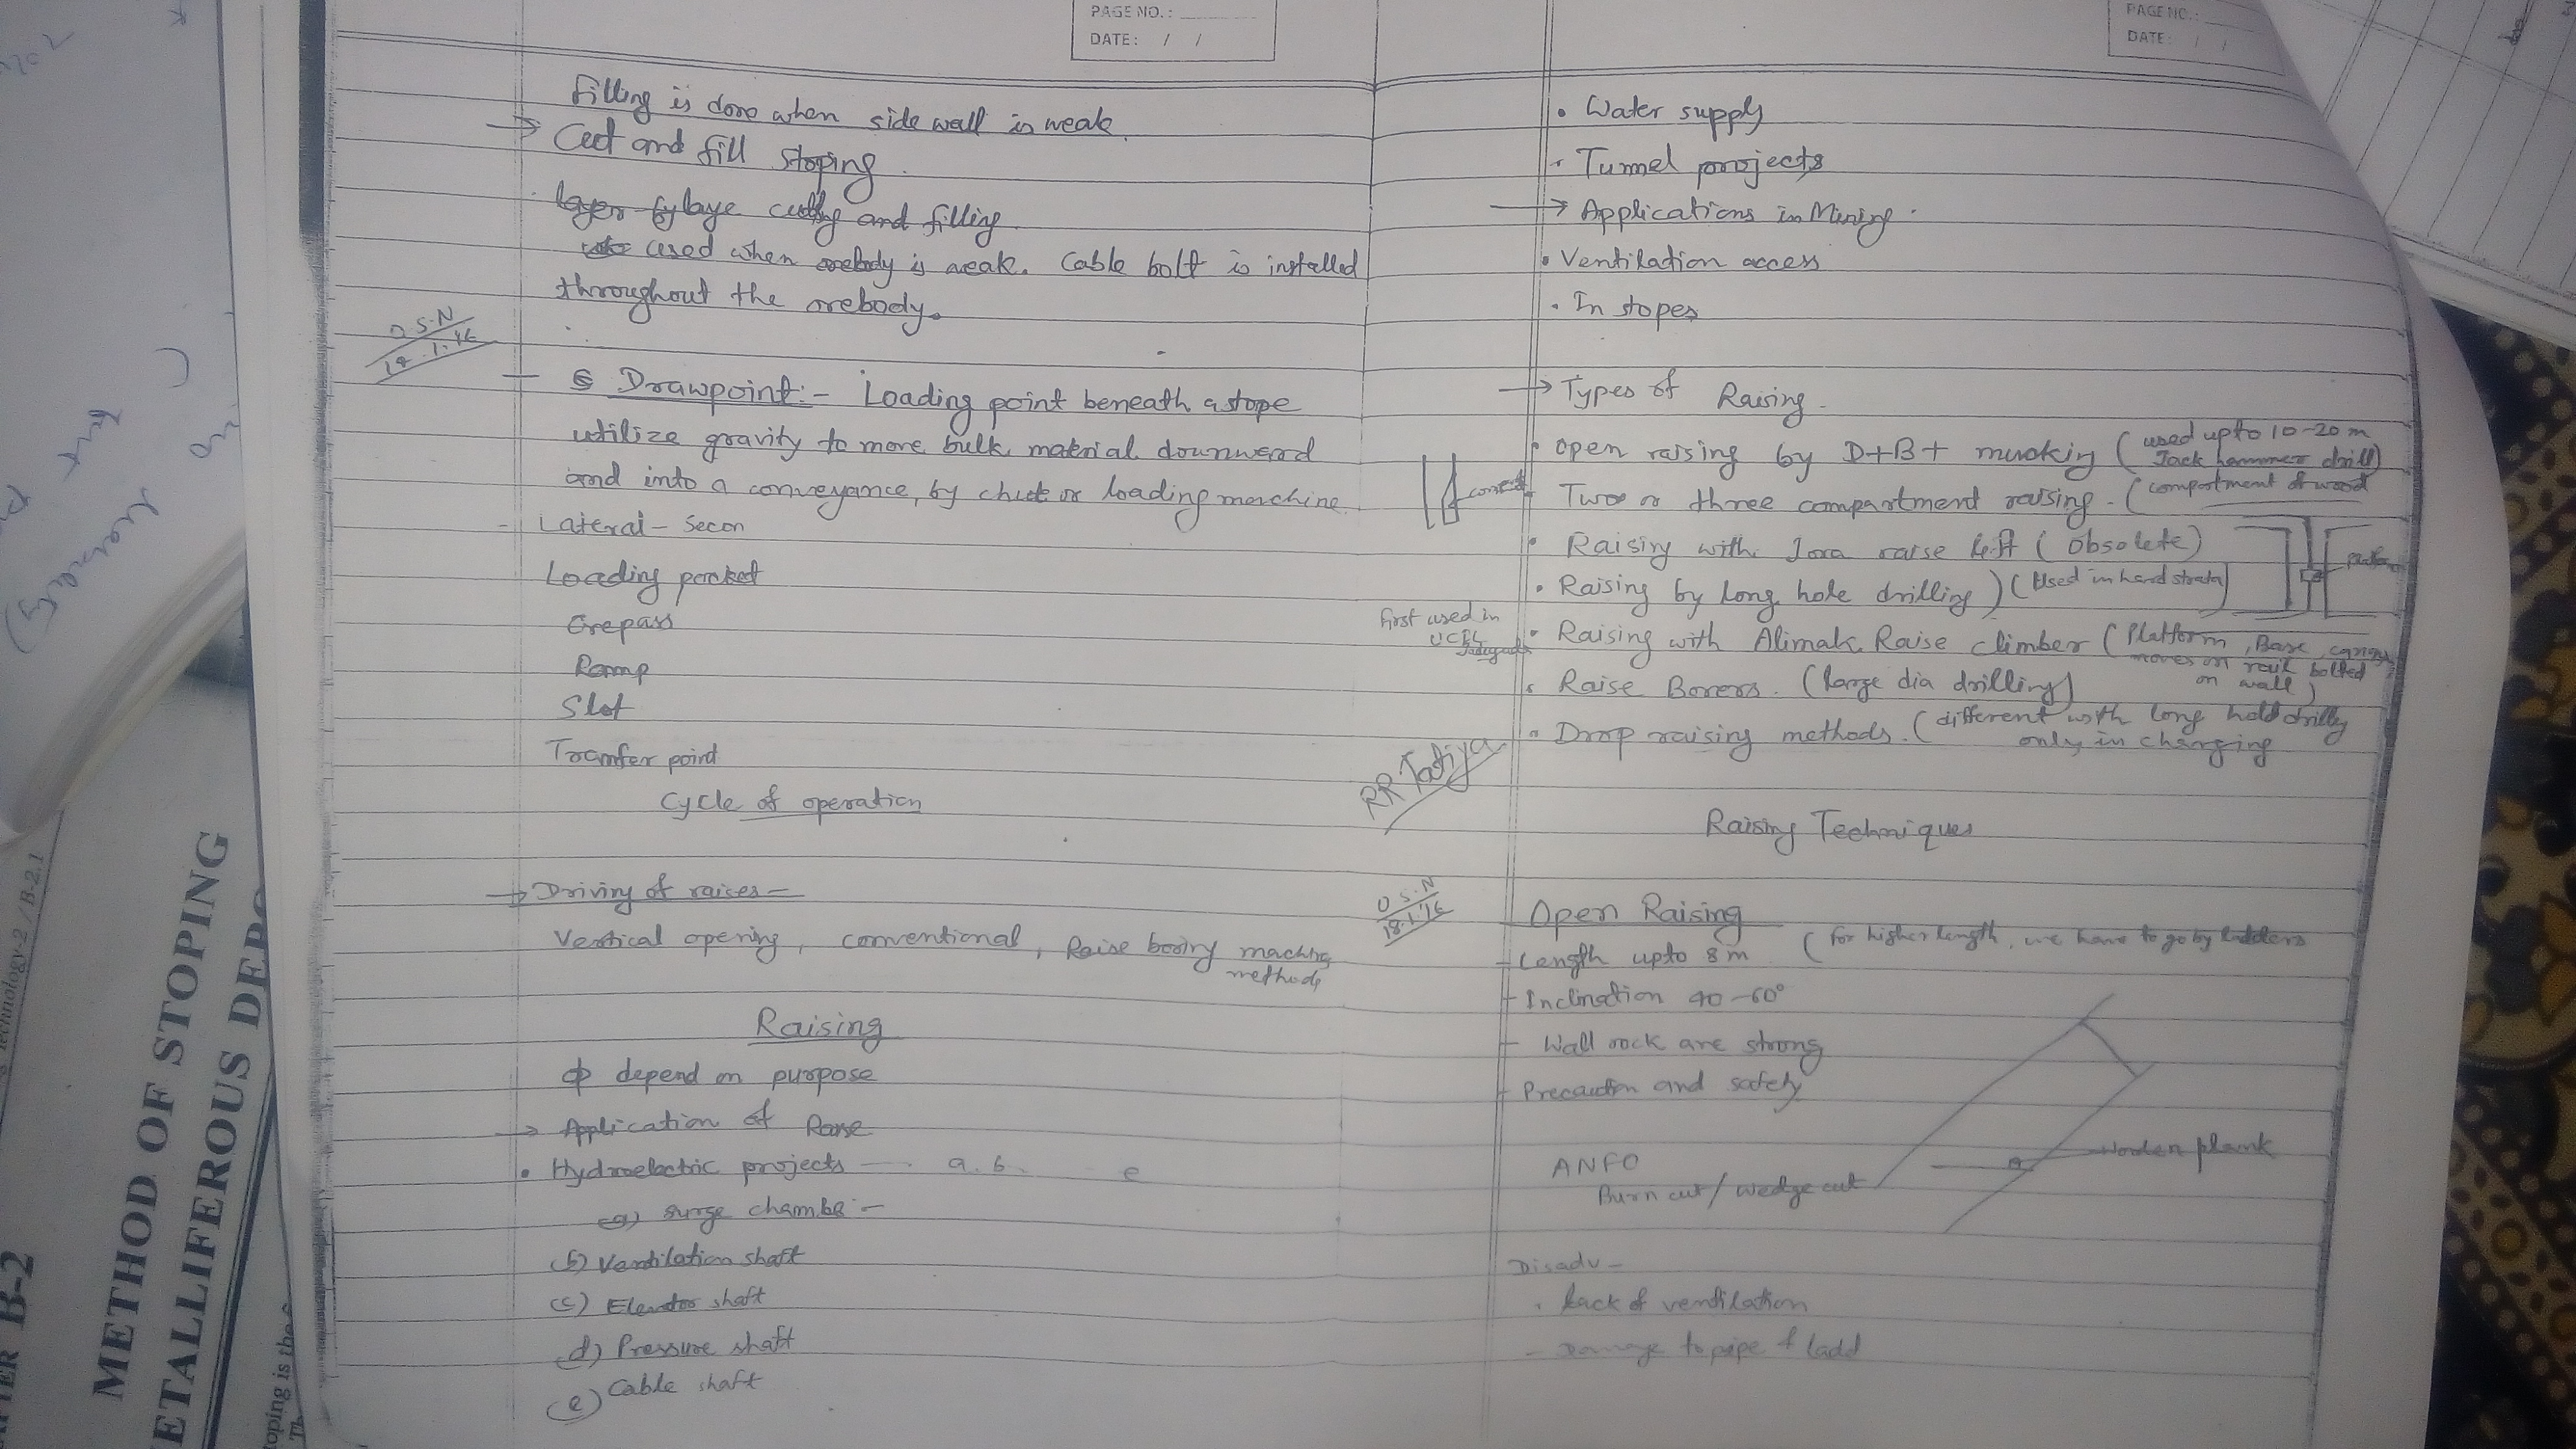 PAGE NO.:
DATE: / /
filling is done when side wall is weak.
→ Cut and fill stoping.
layer by laye cutting and filling.
used when orebody is weak. Cable bolt is installed
throughout the orebody.
O.S.N
18.1.16
Drawpoint:- Loading point beneath a stope
utilize gravity to move bulk material downward
and into a conveyance, by chute or loading machine.
- Lateral - Secon
Loading pocket
Orepass
Ramp
Slot
Tranfer point
Cycle of operation
→ Driving of raises -
Vertical opening, conventional, Raise boring machine
methods
Raising
ф depend on purpose
→ Application of Raise
• Hydroelectric projects — a. b. e
(a) surge chambe :-
(b) Ventilation shaft
(c) Elevator shaft
(d) Pressure shaft
(e) Cable shaft
PAGE NO.:
DATE: / /
• Water supply
• Tunnel projects
→ Applications in Mining.
• Ventilation access
• In stopes
→ Types of Raising.
• open raising by D+B+ mucking (used upto 10-20 m
Jack hammer drill)
• Two or three compartment raising. (compartment of wood
• Raising with Jora raise lift (obsolete)
• Raising by long hole drilling) (Used in hard strata)
First used in
UCIL
• Raising with Alimak Raise climber (Platform, Base,
moves on rail bolted
on wall)
• Raise Borers. (large dia drilling)
• Drop raising methods. (different with long hold drilly
only in charging
RR Tatiya
Raising Techniques
O.S.N
18.1.16
Open Raising
- Length upto 8 m (for higher length, we have to go by ladders
- Inclination 40-60°
- Wall rock are strong
- Precaution and safety
wooden plank
ANFO
Burn cut/ wedge cut
Disadv -
• lack of ventilation
- Damage to pipe & ladd
METHOD OF STOPING
ETALLIFEROUS DEPO
B-2
Technology-2 / B-2.1
toping is the